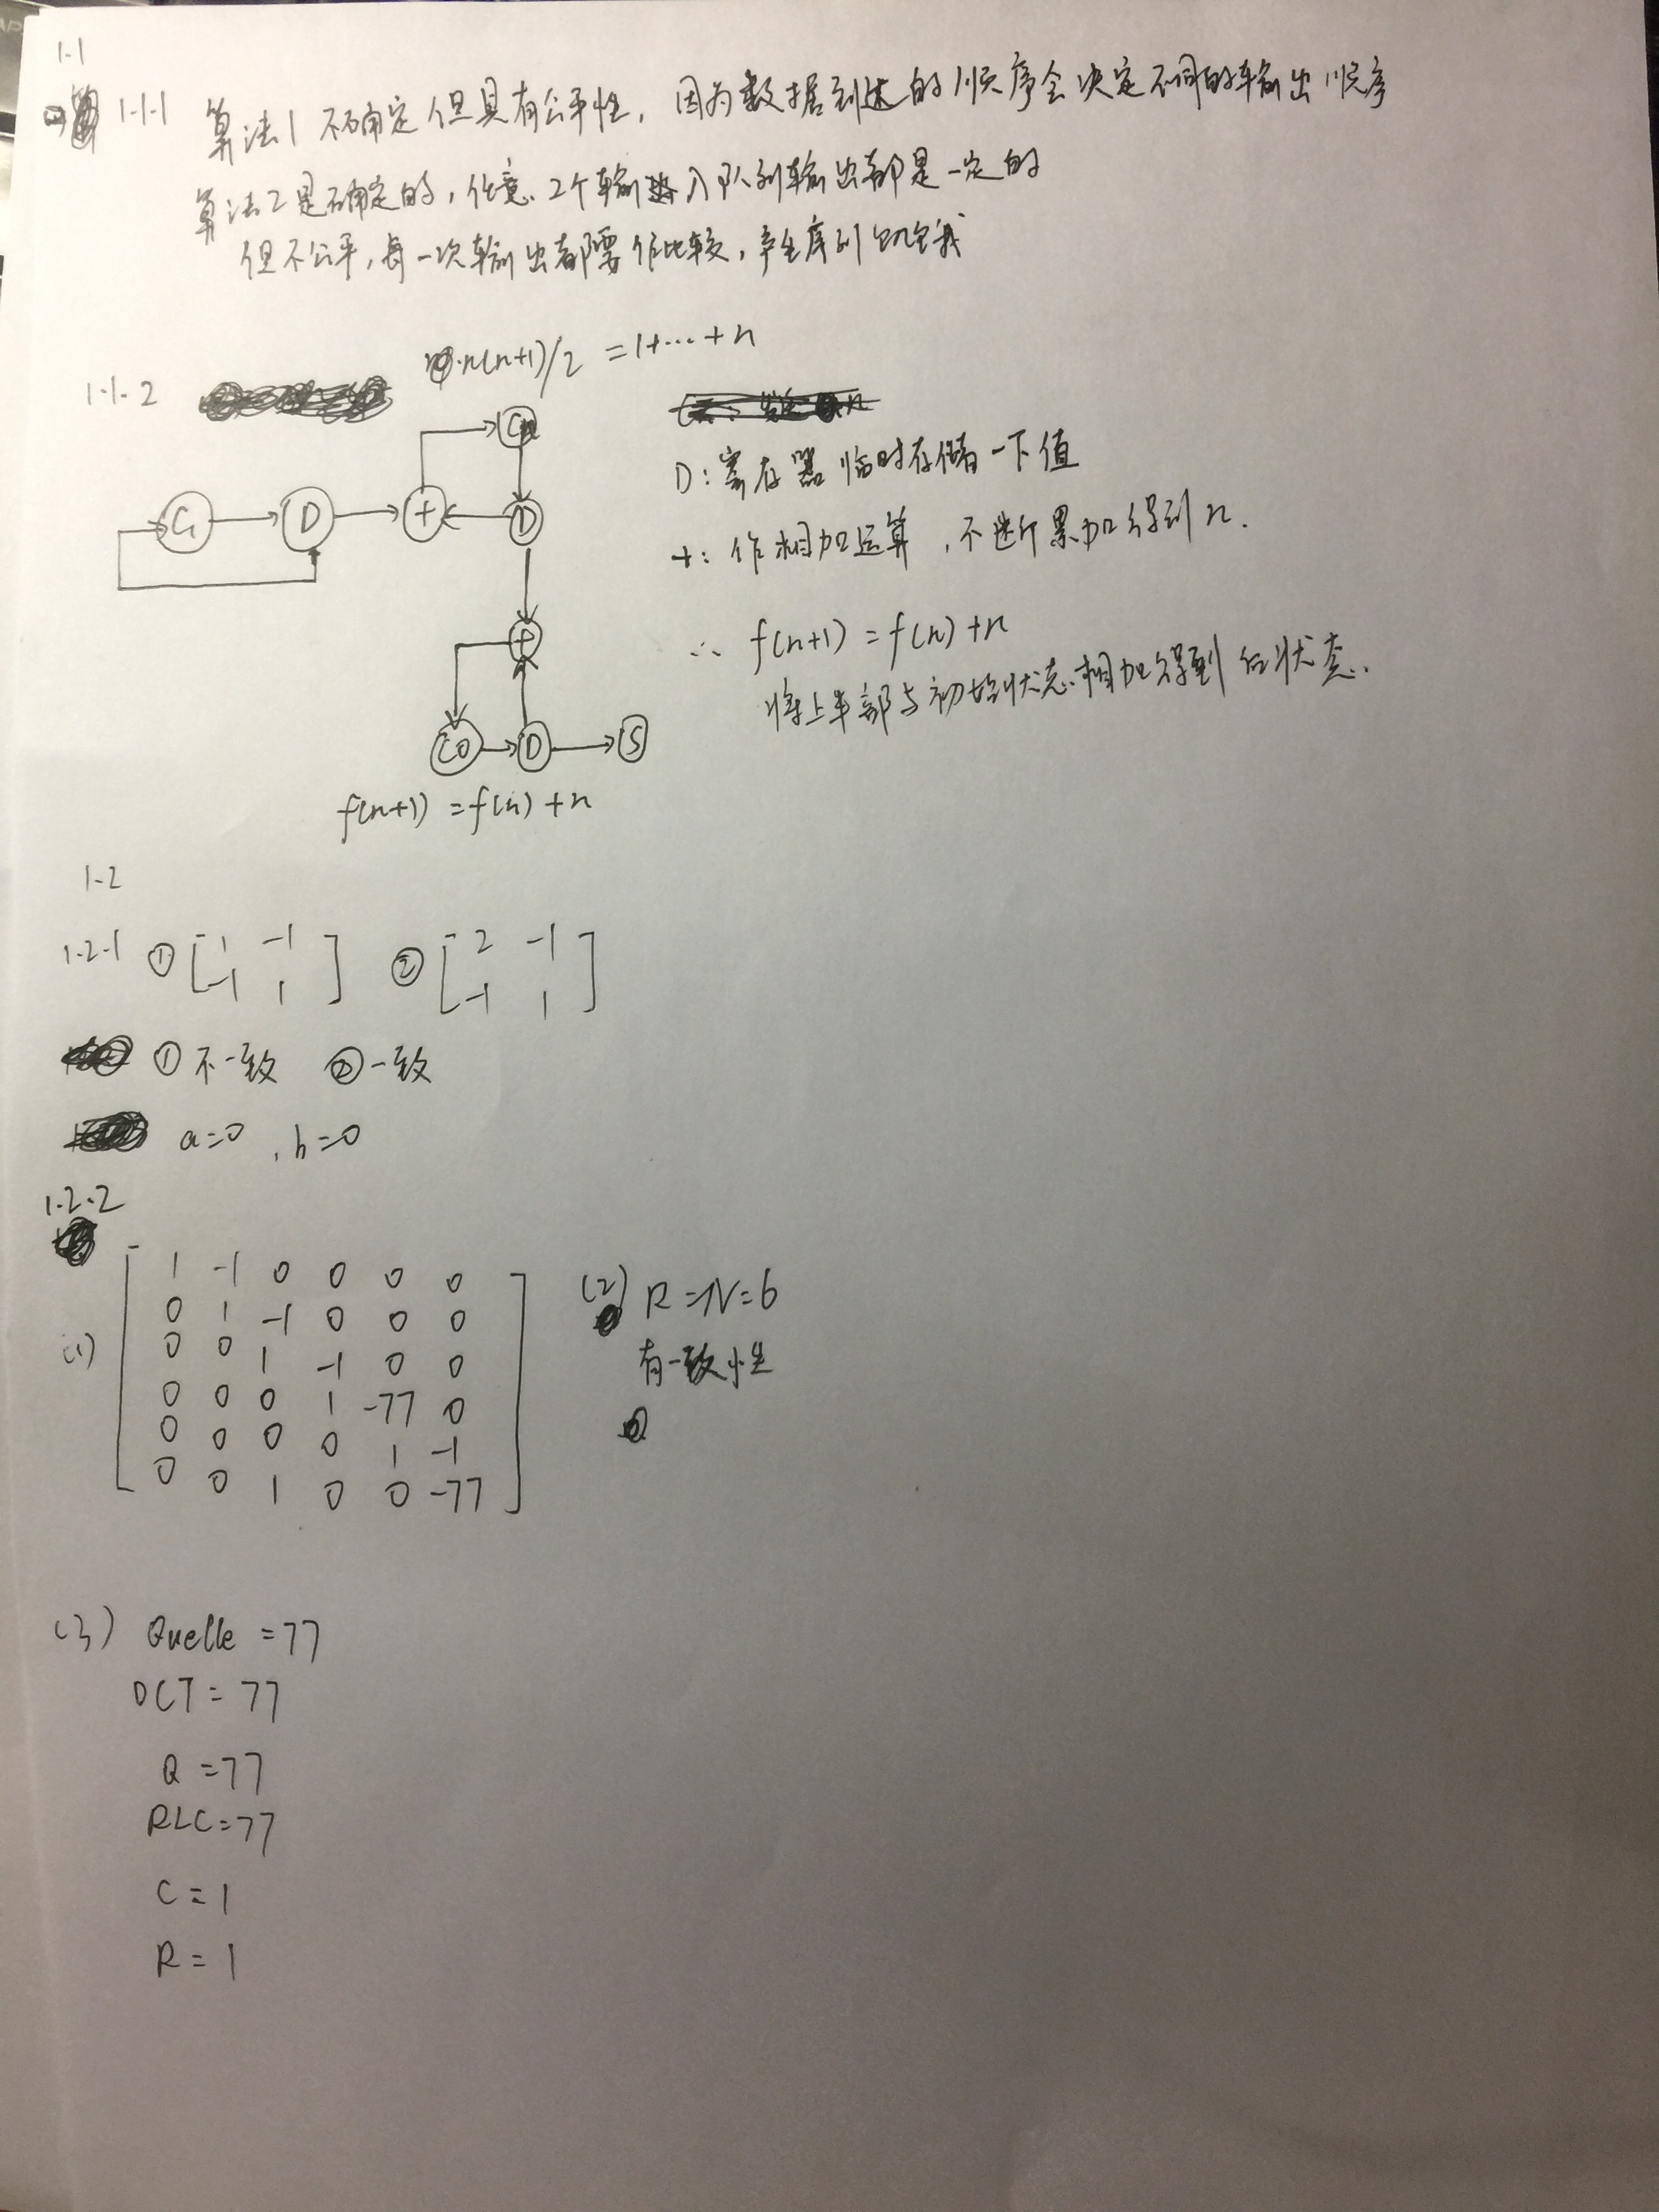 1.1
1.1.1 算法1 不确定 但具有公平性, 因为数据到达的顺序会决定不同的输出顺序
算法2是确定的, 任意2个输入队列输出都是一定的
但不公平, 每一次输出都要作比较, 产生序列饥饿
n(n+1)/2 = 1+…+n
1.1.2
D: 寄存器 临时存储一下值
+: 作相加运算, 不断累加得到n.
∴ f(n+1) = f(n) + n
将上半部与初始状态相加得到后状态.
G D + D
+
C0 D S
f(n+1) = f(n) + n
1.2
1.2.1 ① [ 1 -1 ] ② [ 2 -1 ]
-1 1 -1 1
① 不一致 ② 一致
a=0, b=0
1.2.2
1 -1 0 0 0 0
0 1 -1 0 0 0
0 0 1 -1 0 0
0 0 0 1 -77 0
0 0 0 0 1 -1
0 0 1 0 0 -77
(1)
(2) R=N=6
有一致性
(3) Quelle = 77
DCT = 77
Q = 77
RLC = 77
C = 1
R = 1